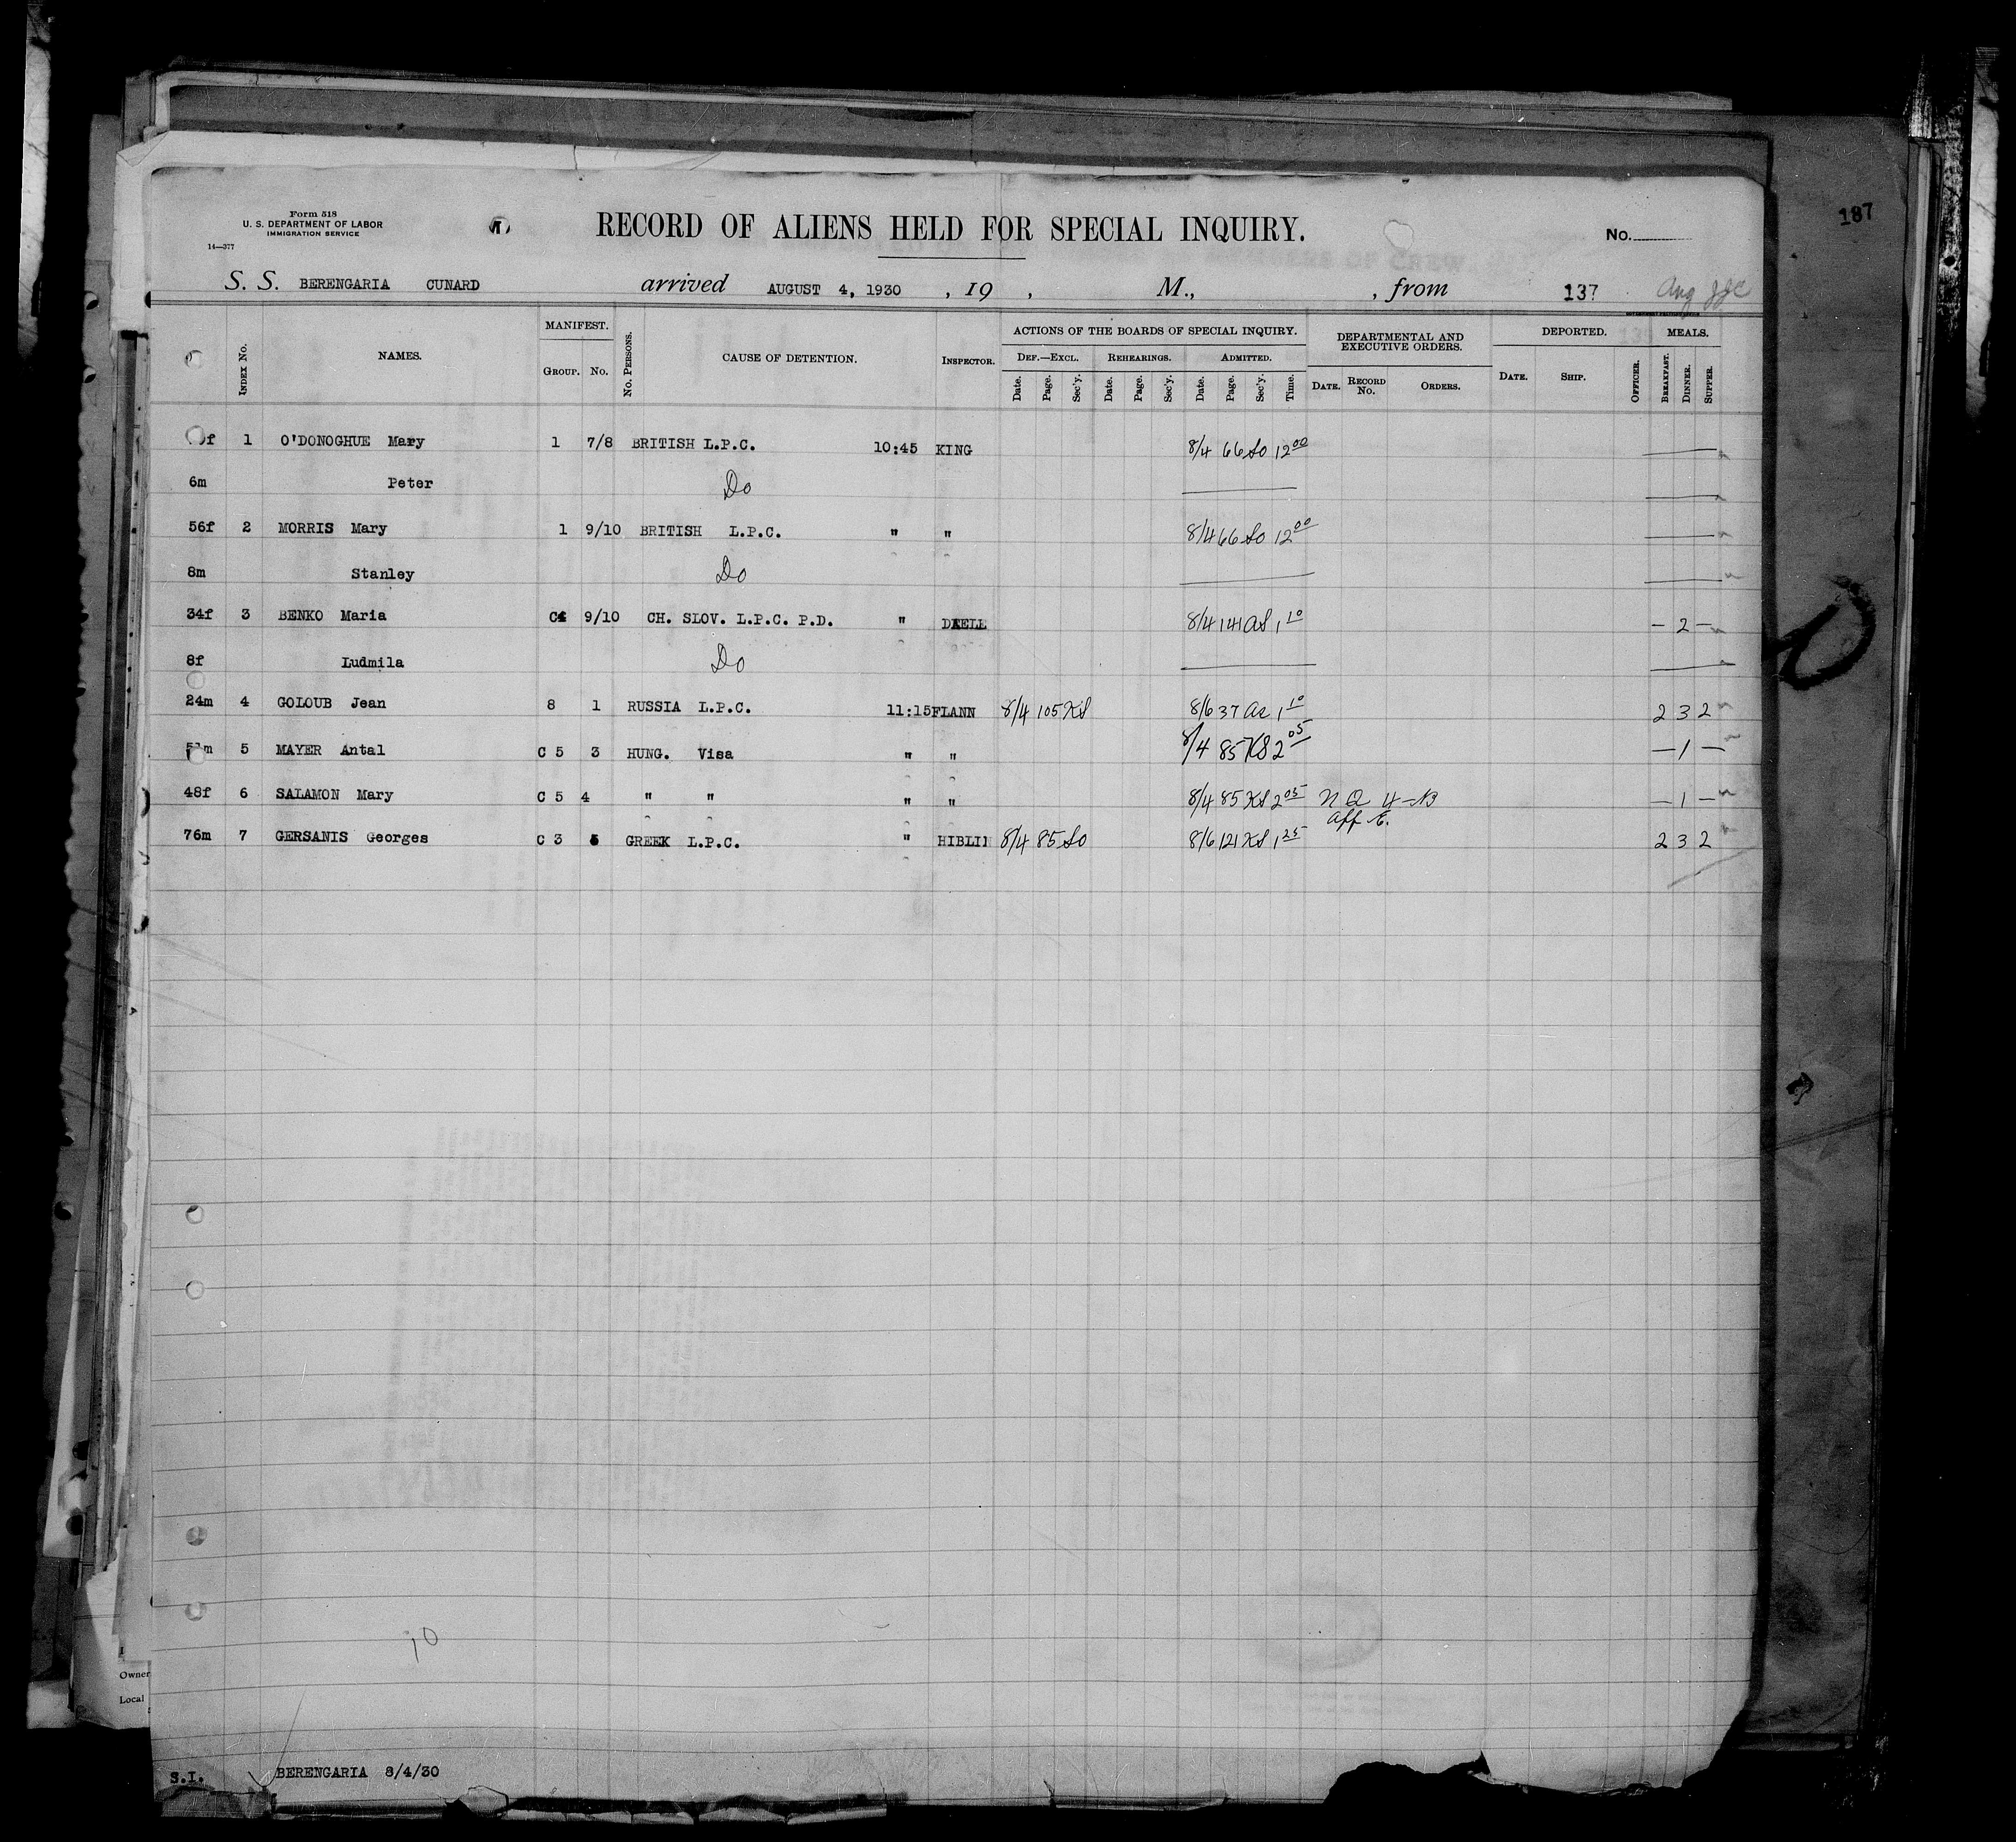 187
Form 518
U. S. DEPARTMENT OF LABOR
IMMIGRATION SERVICE
14—377
RECORD OF ALIENS HELD FOR SPECIAL INQUIRY.
No.
S. S. BERENGARIA CUNARD arrived AUGUST 4, 1930 , 19 , M., , from 137
INDEX No. NAMES. MANIFEST. GROUP. No. No. PERSONS. CAUSE OF DETENTION. INSPECTOR. ACTIONS OF THE BOARDS OF SPECIAL INQUIRY. DEF.—EXCL. Date. Page. Sec'y. REHEARINGS. Date. Page. Sec'y. ADMITTED. Date. Page. Sec'y. Time. DEPARTMENTAL AND EXECUTIVE ORDERS. DATE. RECORD No. ORDERS. DEPORTED. DATE. SHIP. OFFICER. MEALS. BREAKFAST. DINNER. SUPPER.
f 1 O'DONOGHUE Mary 1 7/8 BRITISH L.P.C. 10:45 KING 8/4 66 So 12 00 —
6m Peter Do —
56f 2 MORRIS Mary 1 9/10 BRITISH L.P.C. " " 8/4 66 So 12 00 —
8m Stanley Do —
34f 3 BENKO Maria 9/10 CH. SLOV. L.P.C. P.D. " 8/4 141 AS 1 10 — 2 —
8f Ludmila Do —
24m 4 GOLOUB Jean 8 1 RUSSIA L.P.C. 11:15 FLANN 8/4 105 KS 8/6 37 1 10 2 3 2
m 5 MAYER Antal C 5 3 HUNG. Visa " " 8/4 85 KS 2 05 — 1 —
48f 6 SALAMON Mary C 5 4 " " " " 8/4 85 KS 2 05 N Q 4-B — 1 —
aff
76m 7 GERSANIS Georges C 3 GREEK L.P.C. " HIBLIN 8/4 85 So 8/6 121 KS 1 25 2 3 2
10
Owner
Local
S.I. BERENGARIA 8/4/30